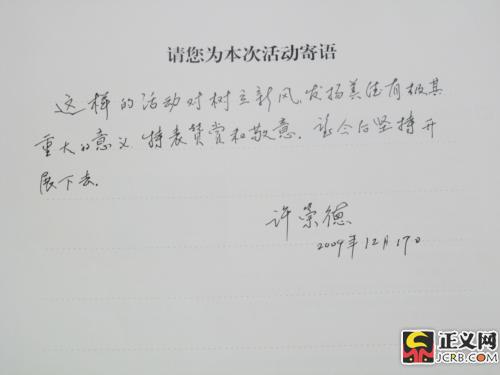 请您为本次活动寄语
这样的活动对树立新风,发扬美德有极其
重大的意义,特表赞赏和敬意。望今后坚持开
展下去。
许崇德
2009年12月17日
正义网
JCRB.COM